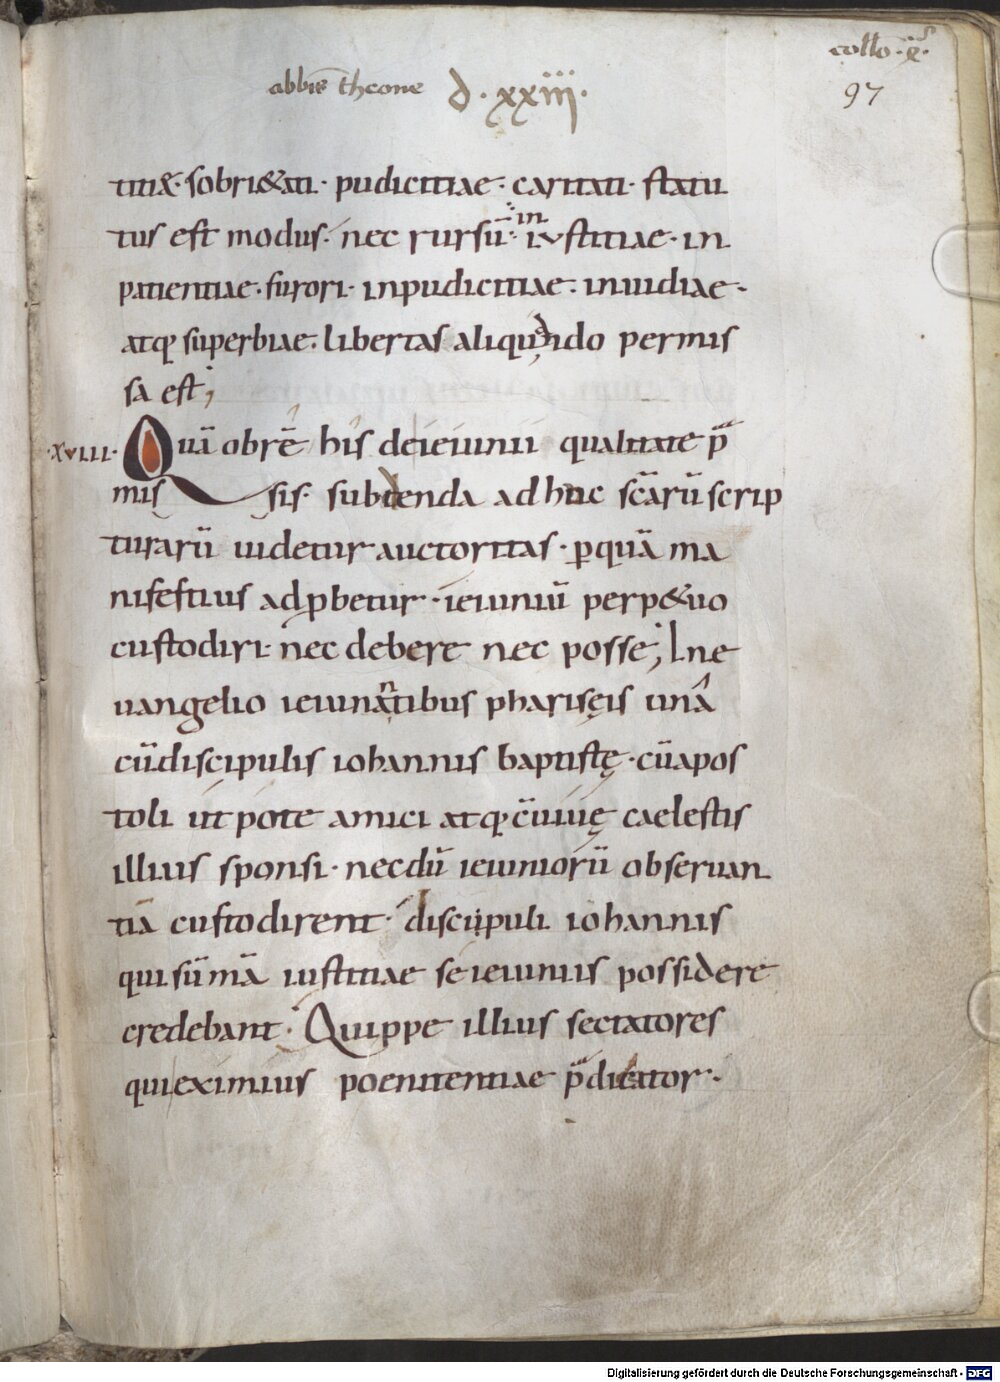 collo·x̅·
abbis theone d·xxiiii·
97
titiæ· sobri&ati· pudicitiae· caritati· statu
tus est modus· nec rursū· in iustitiae· in
patientiae· furori· inpudicitiae· inuidiae·
atq; superbiae· libertas aliquando permis
sa est;
·xviii· Quā obrē his deieiunii qualitate p̄
missis· subdenda adhuc scārū scrip
turarū uidetur auctoritas· ꝑquā ma
nifestius adꝓbetur· ieiuniū perp&uo
custodiri· nec debere nec posse; In e
uangelio ieiunantibus pharisęis unā
cūdiscipulis iohannis baptistę· cūapos
toli ut pote amici atq; c̄uiuę caelestis
illius sponsi· necdū ieiuniorū obseruan
tiā custodirent· discipuli iohannis
qui sūmā iustitiae se ieiuniis possidere
credebant· Quippe illius sectatores
qui eximius poenitentiae p̄dicator·
Digitalisierung gefördert durch die Deutsche Forschungsgemeinschaft - DFG